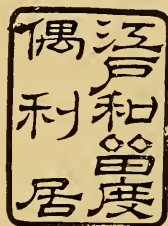 江戸和留度
偶利居